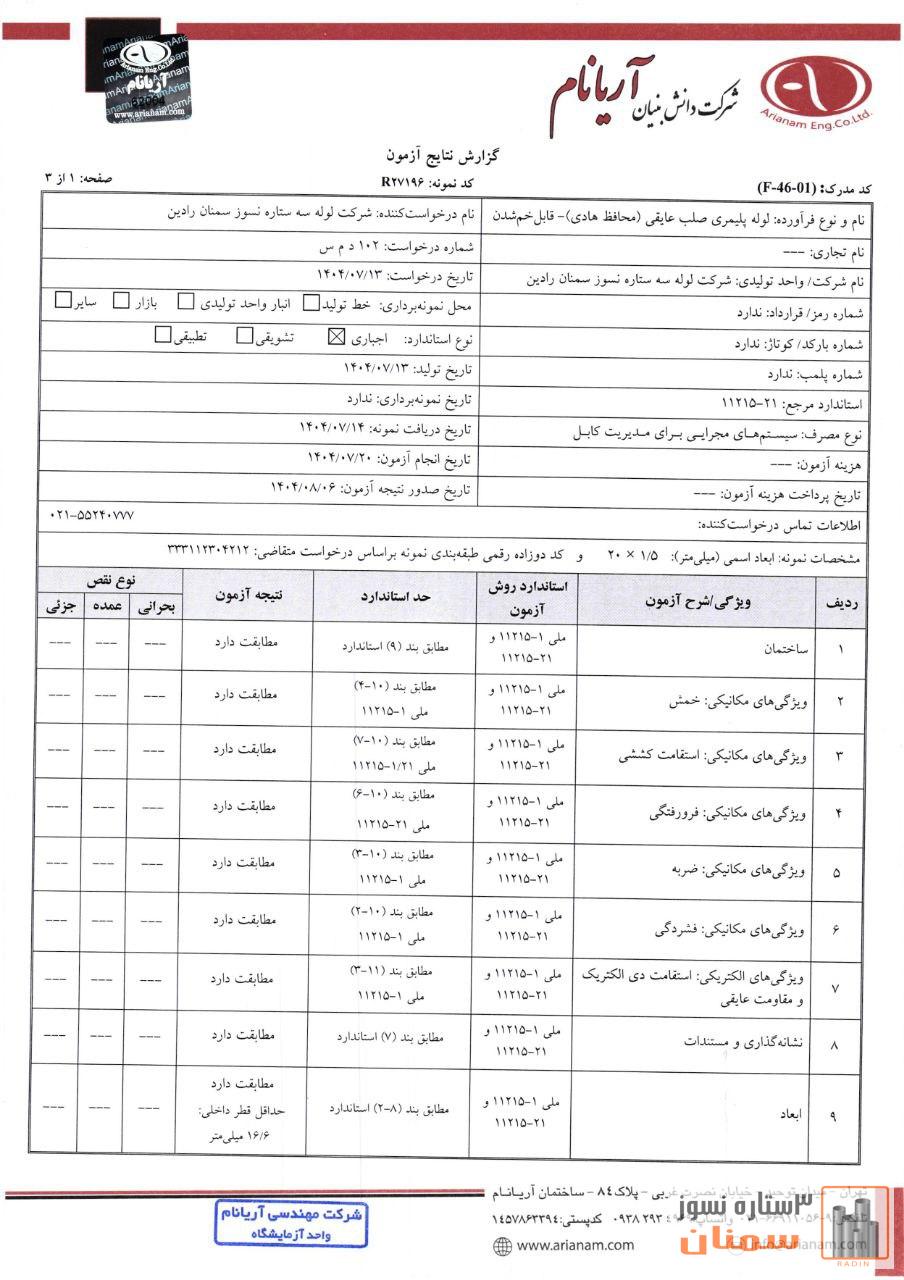 Arianam Eng.Co.Ltd.
آریانام
82064
www.arianam.com
شرکت دانش بنیان آریانام
Arianam Eng.Co.Ltd.
گزارش نتایج آزمون
کد مدرک: (F-46-01)
کد نمونه: R۲۷۱۹۶
صفحه: ۱ از ۳
نام و نوع فرآورده: لوله پلیمری صلب عایقی (محافظ هادی)- قابل‌خم‌شدن
نام درخواست‌کننده: شرکت لوله سه ستاره نسوز سمنان رادین
نام تجاری: ---
شماره درخواست: ۱۰۲ د م س
نام شرکت/ واحد تولیدی: شرکت لوله سه ستاره نسوز سمنان رادین
تاریخ درخواست: ۱۴۰۴/۰۷/۱۳
شماره رمز/ قرارداد: ندارد
محل نمونه‌برداری: خط تولید☐ انبار واحد تولیدی ☐ بازار ☐ سایر☐
شماره بارکد/ کوتاژ: ندارد
نوع استاندارد: اجباری ☒ تشویقی☐ تطبیقی☐
شماره پلمب: ندارد
تاریخ تولید: ۱۴۰۴/۰۷/۱۳
استاندارد مرجع: ۲۱-۱۱۲۱۵
تاریخ نمونه‌برداری: ندارد
نوع مصرف: سیستم‌های مجرایی برای مدیریت کابل
تاریخ دریافت نمونه: ۱۴۰۴/۰۷/۱۴
هزینه آزمون: ---
تاریخ انجام آزمون: ۱۴۰۴/۰۷/۲۰
تاریخ پرداخت هزینه آزمون: ---
تاریخ صدور نتیجه آزمون: ۱۴۰۴/۰۸/۰۶
اطلاعات تماس درخواست‌کننده:
۰۲۱-۵۵۲۴۰۷۷۷
مشخصات نمونه: ابعاد اسمی (میلی‌متر): ۱/۵ × ۲۰ و کد دوزاده رقمی طبقه‌بندی نمونه براساس درخواست متقاضی: ۳۳۳۱۱۲۳۰۴۲۱۲
ردیف
ویژگی/شرح آزمون
استاندارد روش
آزمون
حد استاندارد
نتیجه آزمون
نوع نقص
بحرانی
عمده
جزئی
۱
ساختمان
ملی ۱-۱۱۲۱۵ و
۲۱-۱۱۲۱۵
مطابق بند (۹) استاندارد
مطابقت دارد
---
---
---
۲
ویژگی‌های مکانیکی: خمش
ملی ۱-۱۱۲۱۵ و
۲۱-۱۱۲۱۵
مطابق بند (۱۰-۴)
ملی ۱-۱۱۲۱۵
مطابقت دارد
---
---
---
۳
ویژگی‌های مکانیکی: استقامت کششی
ملی ۱-۱۱۲۱۵ و
۲۱-۱۱۲۱۵
مطابق بند (۱۰-۷)
ملی ۱/۲۱-۱۱۲۱۵
مطابقت دارد
---
---
---
۴
ویژگی‌های مکانیکی: فرورفتگی
ملی ۱-۱۱۲۱۵ و
۲۱-۱۱۲۱۵
مطابق بند (۱۰-۶)
ملی ۲۱-۱۱۲۱۵
مطابقت دارد
---
---
---
۵
ویژگی‌های مکانیکی: ضربه
ملی ۱-۱۱۲۱۵ و
۲۱-۱۱۲۱۵
مطابق بند (۱۰-۳)
ملی ۱-۱۱۲۱۵
مطابقت دارد
---
---
---
۶
ویژگی‌های مکانیکی: فشردگی
ملی ۱-۱۱۲۱۵ و
۲۱-۱۱۲۱۵
مطابق بند (۱۰-۲)
ملی ۱-۱۱۲۱۵
مطابقت دارد
---
---
---
۷
ویژگی‌های الکتریکی: استقامت دی الکتریک
و مقاومت عایقی
ملی ۱-۱۱۲۱۵ و
۲۱-۱۱۲۱۵
مطابق بند (۱۱-۳)
ملی ۱-۱۱۲۱۵
مطابقت دارد
---
---
---
۸
نشانه‌گذاری و مستندات
ملی ۱-۱۱۲۱۵ و
۲۱-۱۱۲۱۵
مطابق بند (۷) استاندارد
مطابقت دارد
---
---
---
۹
ابعاد
ملی ۱-۱۱۲۱۵ و
۲۱-۱۱۲۱۵
مطابق بند (۸-۲) استاندارد
مطابقت دارد
حداقل قطر داخلی:
۱۶/۶ میلی‌متر
---
---
---
تهران - میدان توحید - خیابان نصرت غربی - پلاک ۸۴ - ساختمان آریانام
کدپستی: ۱۴۵۷۸۶۳۳۹۴
www.arianam.com
info@arianam.com
شرکت مهندسی آریانام
واحد آزمایشگاه
۳ستاره نسوز
سمنان
RADIN